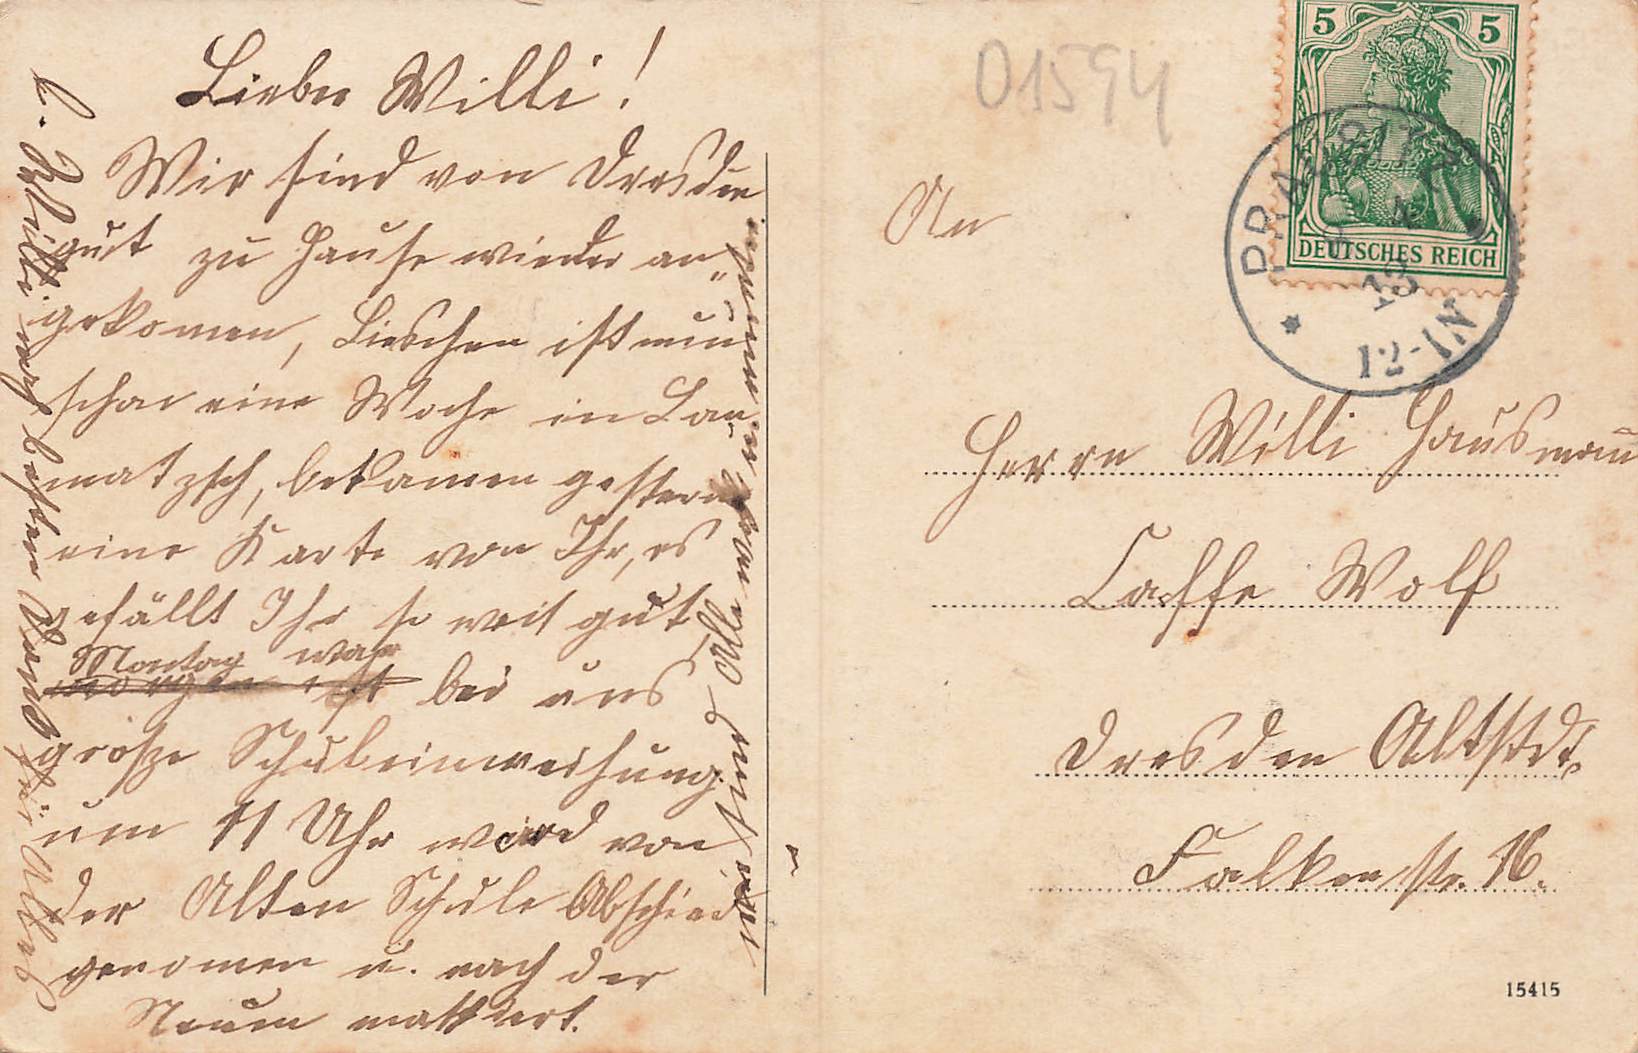 Lieber Willi!
Wir sind von Dresden
gut zu Hause wieder an-
gekomen, Lieschen ist nun
schon eine Woche in Lom-
matzsch, bekamen gestern
eine Karte von Ihr, es
gefällt Ihr so weit gut,
Montag war
morgen ist bei uns
große Schuleinweihung
um 11 Uhr wird von
der Alten Schule Abschied
genomen u. nach der
Neuen
L. Willi noch besten Dank für Alles
von Allen
01594
5 5
DEUTSCHES REICH
PRAUSITZ
4
13
12-1N
An
Herrn Willi Hausmann
Caffe Wolf
Dresden Altstdt.
Falkenstr. 16.
15415